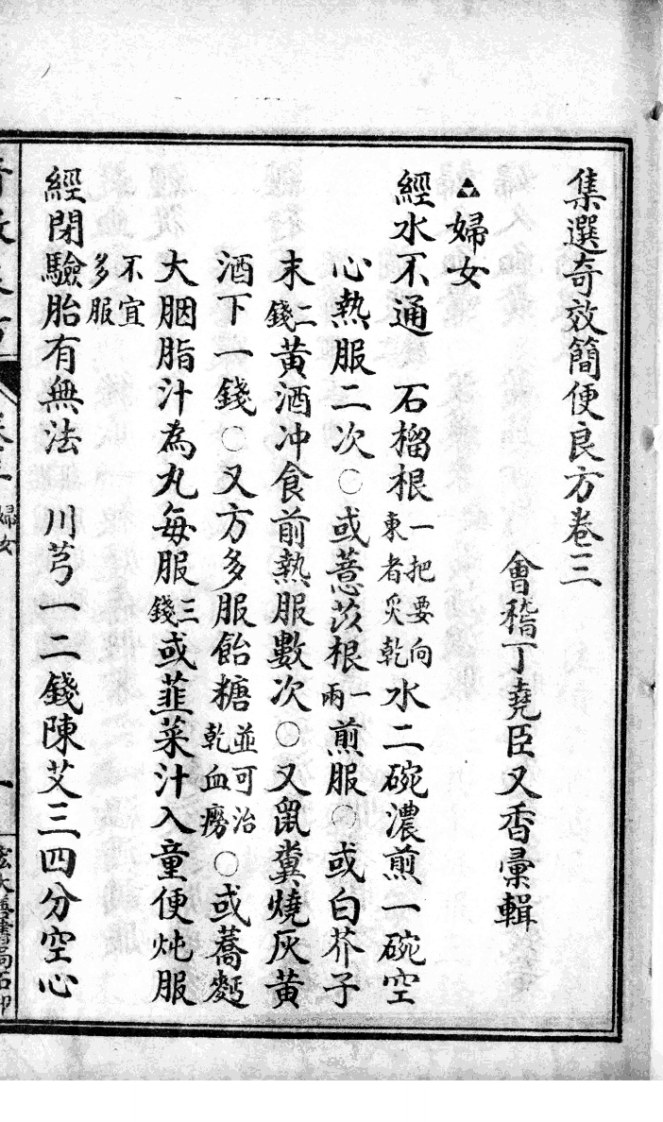 集選奇效簡便良方卷三
會稽丁堯臣又香彙輯
▲婦女
經水不通　石榴根一把要向東者炙乾水二碗濃煎一碗空
心熱服二次○或薏苡根一兩煎服○或白芥子
末二錢黃酒冲食前熱服數次○又鼠糞燒灰黃
酒下一錢○又方多服飴糖並可治乾血癆○或蕎麪
大胭脂汁為丸每服三錢或韮菜汁入童便炖服
不宜多服
經閉驗胎有無法　川芎一二錢陳艾三四分空心
卷三
婦女
一
宏大善書局石印